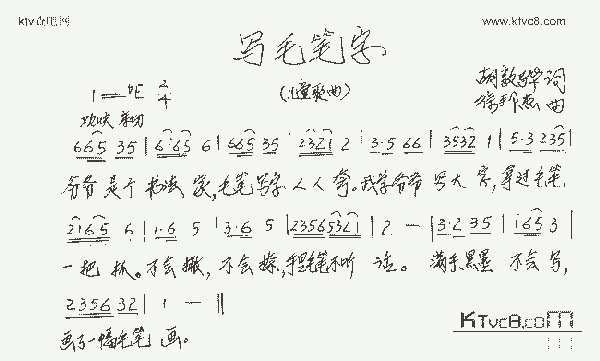 www.ktvc8.com
写毛笔字
(儿童歌曲)
1=♭E 2/4
胡敦骅 词
曲
欢快 亲切
665 35 | 6·65 6 | 665 35 | 2321 2 | 3·5 66 | 3532 1 | 5·3 235 |
爷爷是个书法家,毛笔写字人人夸。我学爷爷写大字,拿过毛笔
2165 6 | 1·6 5 | 3·6 5 | 23565321 | 2 — | 3·2 35 | 165 3 |
一把抓。不会撇,不会捺,手里毛笔不听话。满手黑墨不会写,
2356 32 | 1 — ‖
画了一幅毛笔画。
KTvc8.com